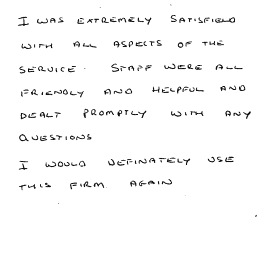 I WAS EXTREMELY SATISFIED
WITH ALL ASPECTS OF THE
SERVICE. STAFF WERE ALL
FRIENDLY AND HELPFUL AND
DEALT PROMPTLY WITH ANY
QUESTIONS
I WOULD DEFINATELY USE
THIS FIRM AGAIN